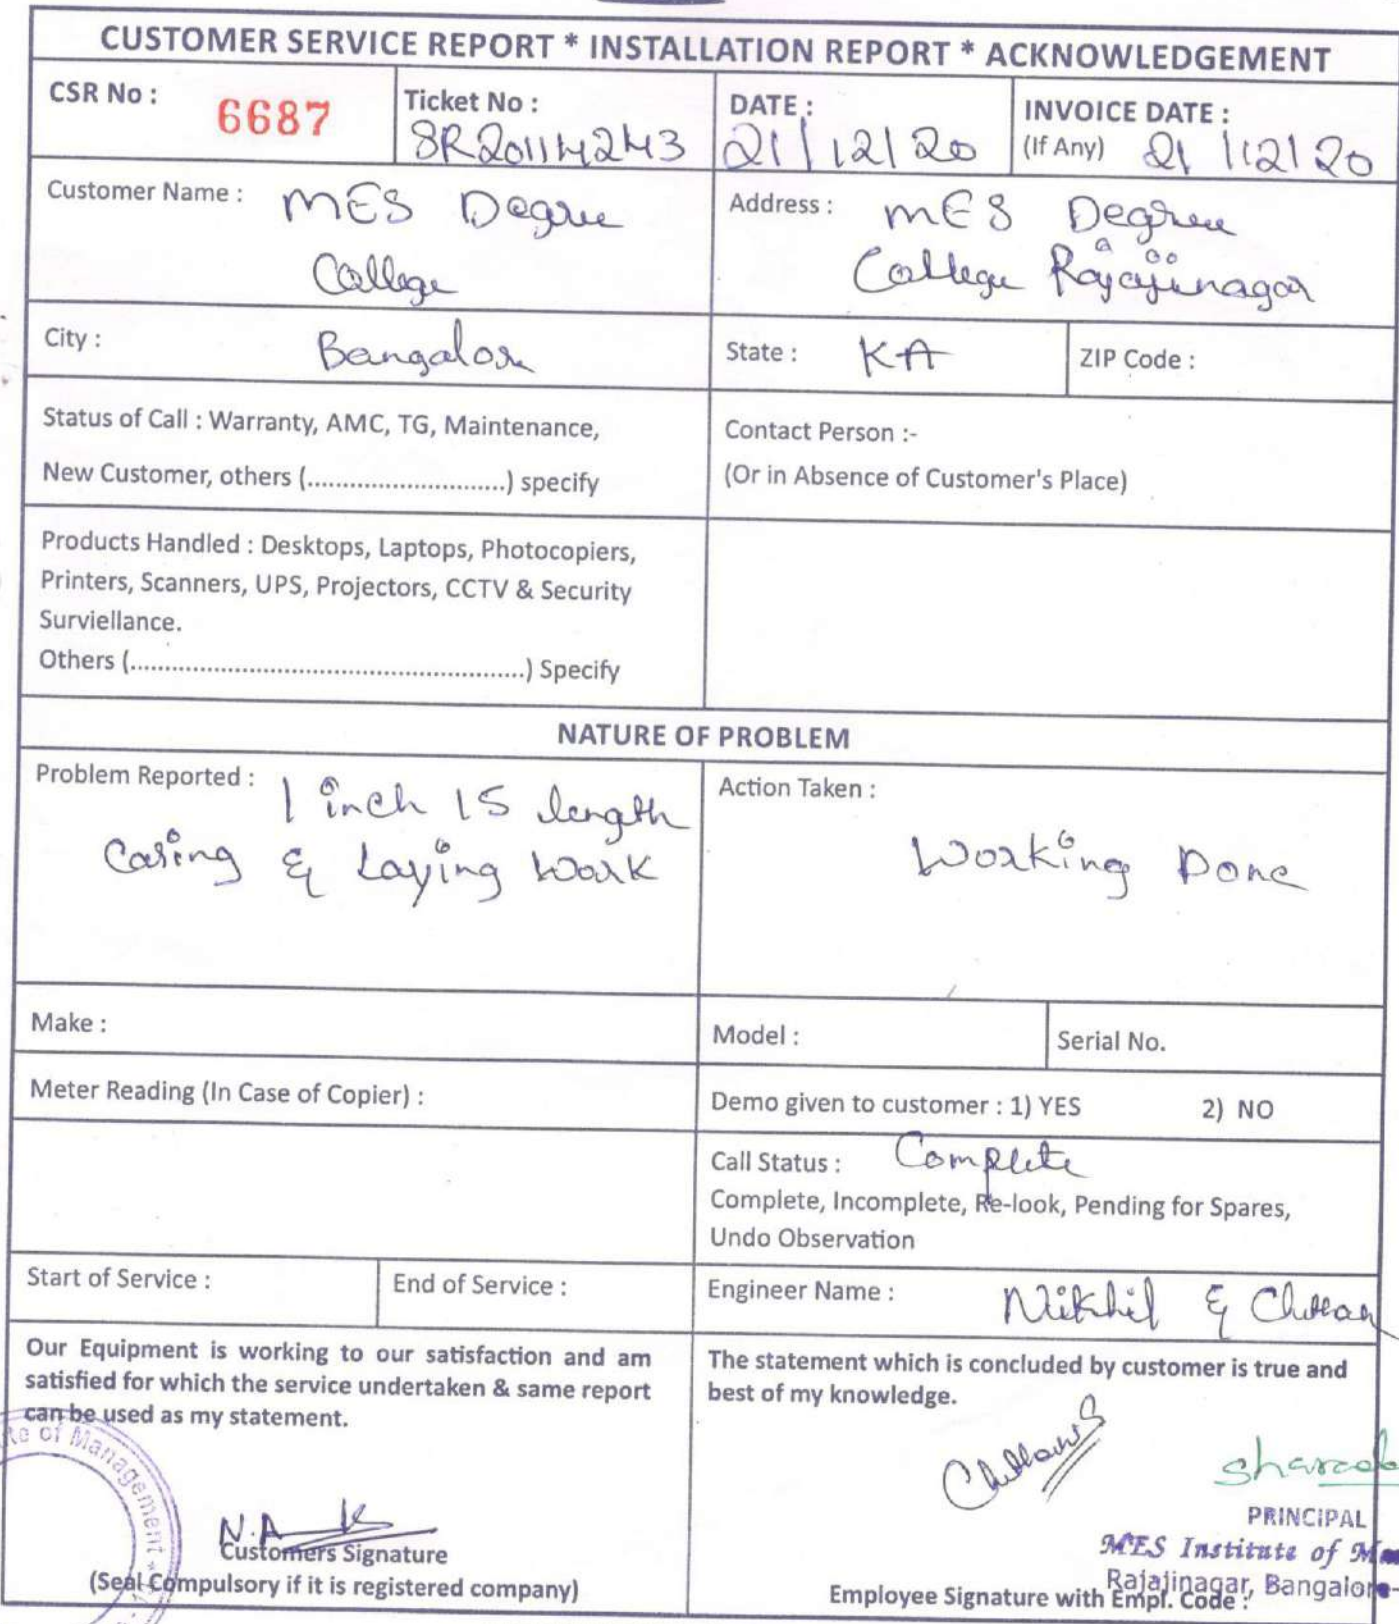 CUSTOMER SERVICE REPORT * INSTALLATION REPORT * ACKNOWLEDGEMENT
CSR No : 6687
Ticket No : SR20114243
DATE : 21/12/20
INVOICE DATE : (If Any) 21/12/20
Customer Name : MES Degree
College
Address : MES Degree
College Rajajinagar
City : Bangalore
State : KA
ZIP Code :
Status of Call : Warranty, AMC, TG, Maintenance,
New Customer, others (............................) specify
Contact Person :-
(Or in Absence of Customer's Place)
Products Handled : Desktops, Laptops, Photocopiers,
Printers, Scanners, UPS, Projectors, CCTV & Security
Surviellance.
Others (.........................................................) Specify
NATURE OF PROBLEM
Problem Reported : 1 inch 15 length
Casing & Laying Work
Action Taken :
Working Done
Make :
Model :
Serial No.
Meter Reading (In Case of Copier) :
Demo given to customer : 1) YES 2) NO
Call Status : Complete
Complete, Incomplete, Re-look, Pending for Spares,
Undo Observation
Start of Service :
End of Service :
Engineer Name : Nikhil &
Our Equipment is working to our satisfaction and am
satisfied for which the service undertaken & same report
can be used as my statement.
The statement which is concluded by customer is true and
best of my knowledge.
of Management
N.A
Customers Signature
(Seal Compulsory if it is registered company)
PRINCIPAL
MES Institute of
Rajajinagar, Bangalore-
Employee Signature with Empl. Code :